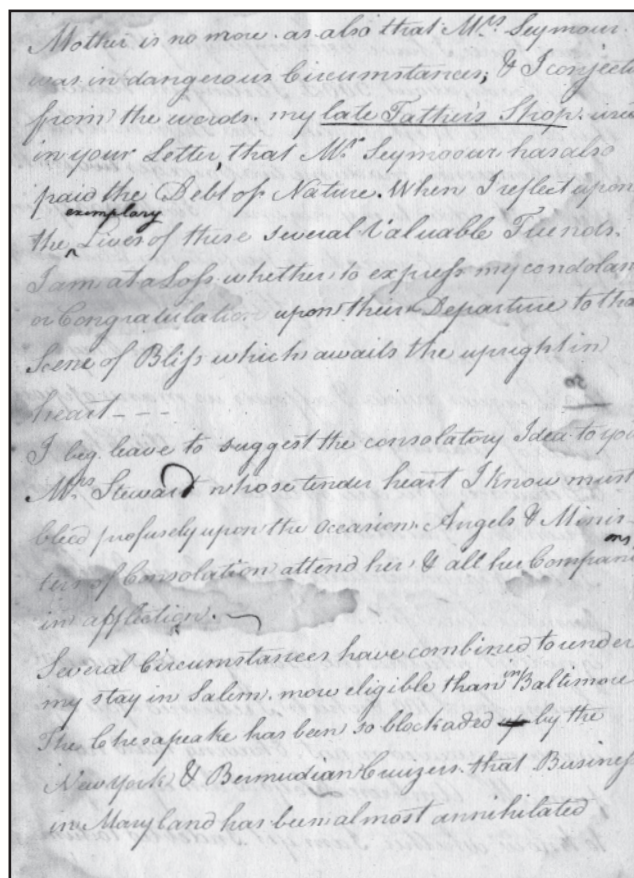 Mother is no more. as also that Mrs Seymour.
was in dangerous Circumstances; & I conject
from the words. my late Father's Shop. used
in your Letter, that Mr Seymoour has also
paid the Debt of Nature. When I reflect upon
exemplary
the ^ Lives of these several Valuable Friends.
I am at a Loss whether to express my condolan
or Congratulation upon their Departure to tha
Scene of Bliss which awaits the upright in
heart - - -
I beg leave to suggest the consolatory Idea to you
Mrs Steward whose tender heart I know must
bleed profusely upon the occasion. Angels & Minis-
ters of Consolation attend her & all her Companions
in affliction.
Several Circumstances have combined to render
my stay in Salem. more eligible than in Baltimore
The Chesapeake has been so blockaded by the
New York & Bermudian Cruizers. that Business
in Maryland has been almost annihilated